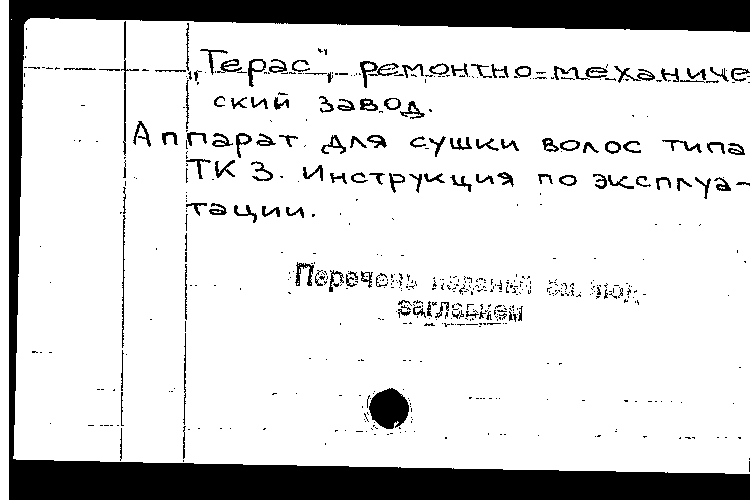 „Терас", ремонтно-механиче
ский завод.
Аппарат для сушки волос типа
ТК 3. Инструкция по эксплуа-
тации.
Перечень изданий см. под
заглавием